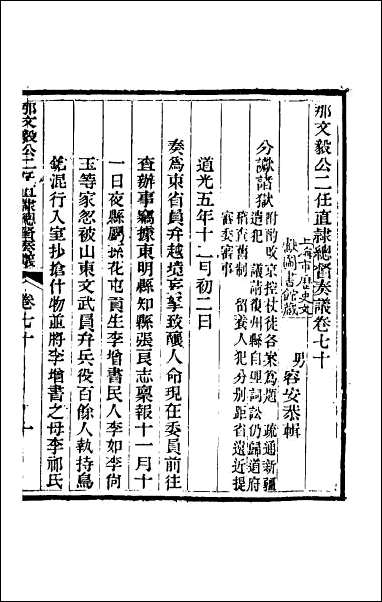 那文毅公二任直隸總督奏議卷七十
上海市歷史文
獻圖書館藏
男容安恭輯
分讞諸獄附酌改京控杖徒各案為題 疏通新疆
遣犯 議請復州縣自理詞訟仍歸道府
稽查舊制 留養人犯分别距省遠近提
審委審事
道光五年十二月初二日
奏為東省員弁越境妄拏致釀人命現在委員前往
查辦事竊據東明縣知縣張良志稟報十一月十
一日夜縣屬桃花屯貢生李增書民人李如李向
玉等家忽被山東文武員弁兵役百餘人執持鳥
鎗混行入室抄搶什物並將李增書之母李祁氏
那文毅公二任直隸總督奏議 卷七十 一